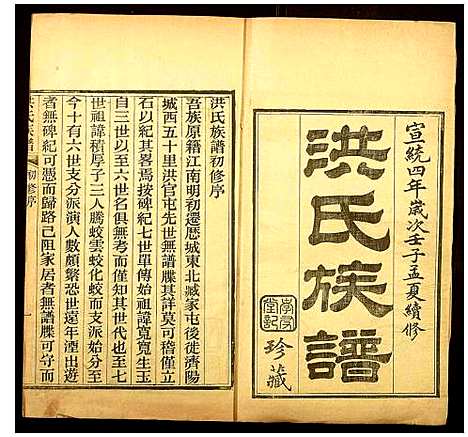 宣統四年歲次壬子孟夏續修
洪氏族譜
珍藏
洪氏族譜初修序
吾族原籍江南明初遷歷城東北臧家屯後徙濟陽
城西五十里洪官屯先世無譜牒其詳莫可稽僅立
石以紀其畧焉按碑紀七世單傳始祖諱寬寬生玉
自三世以至六世名俱無考而僅知其世代也至七
世祖諱積厚子三人騰蛟雲蛟化蛟而支派始分至
今十有六世支分派演人數頗繁恐世遠年湮出遊
者無碑紀可憑而歸路已阻家居者無譜牒可守而
洪氏族譜
初修序
一